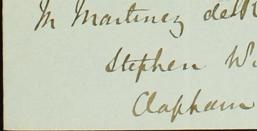 M Martinez del R
Stephen W
Clapham